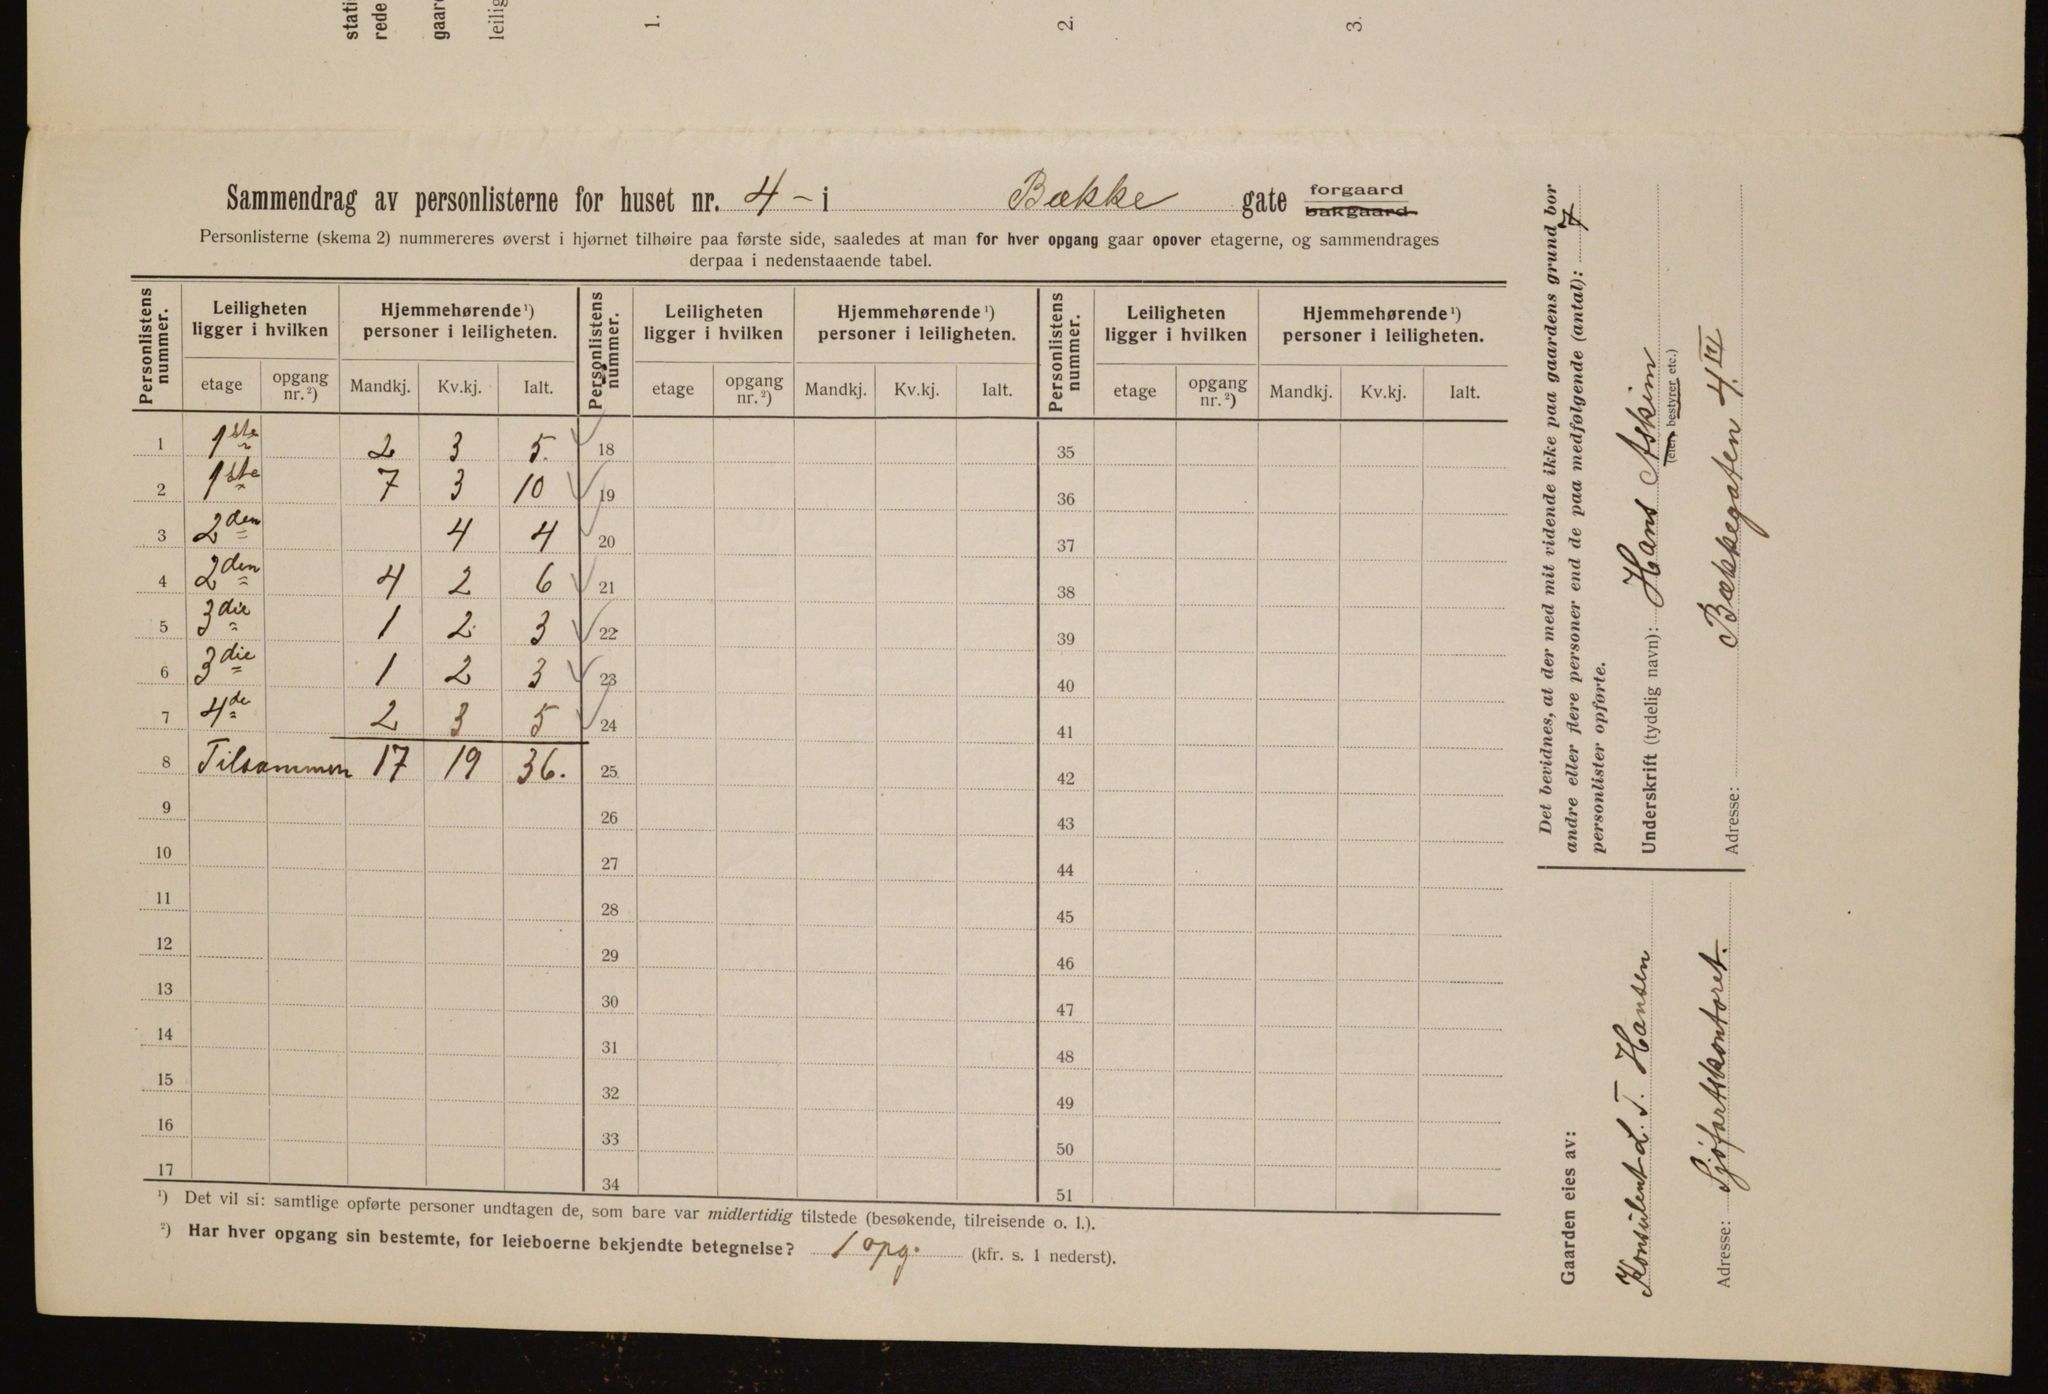 stati
rede
gaard
leilig
1.
2.
3.
Sammendrag av personlisterne for huset nr. 4 - i Bække gate forgaard bakgaard
Personlisterne (skema 2) nummereres øverst i hjørnet tilhøire paa første side, saaledes at man for hver opgang gaar opover etagerne, og sammendrages
derpaa i nedenstaaende tabel.
Personlistens nummer. Leiligheten ligger i hvilken Hjemmehørende¹) personer i leiligheten. Personlistens nummer. Leiligheten ligger i hvilken Hjemmehørende¹) personer i leiligheten. Personlistens nummer. Leiligheten ligger i hvilken Hjemmehørende¹) personer i leiligheten.
etage opgang nr.²) Mandkj. Kv.kj. Ialt. etage opgang nr.²) Mandkj. Kv.kj. Ialt. etage opgang nr.²) Mandkj. Kv.kj. Ialt.
1 1ste 2 3 5. 18 35
2 1ste 7 3 10 19 36
3 2den 4 4 20 37
4 2den 4 2 6 21 38
5 3die 1 2 3 22 39
6 3die 1 2 3 23 40
7 4de 2 3 5 24 41
8 Tilsammen 17 19 36. 25 42
9 26 43
10 27 44
11 28 45
12 29 46
13 30 47
14 31 48
15 32 49
16 33 50
17 34 51
¹) Det vil si: samtlige opførte personer undtagen de, som bare var midlertidig tilstede (besøkende, tilreisende o. l.).
²) Har hver opgang sin bestemte, for leieboerne bekjendte betegnelse? 1 opg. (kfr. s. 1 nederst).
Det bevidnes, at der med mit vidende ikke paa gaardens grund bor
andre eller flere personer end de paa medfølgende (antal): 7
personlister opførte.
Underskrift (tydelig navn): Hans Askim
(eier, bestyrer etc.)
Adresse: Bækkegaten 4 IV
Gaarden eies av:
Konsulent L. T. Hansen
Adresse: Sjøfartskontoret.